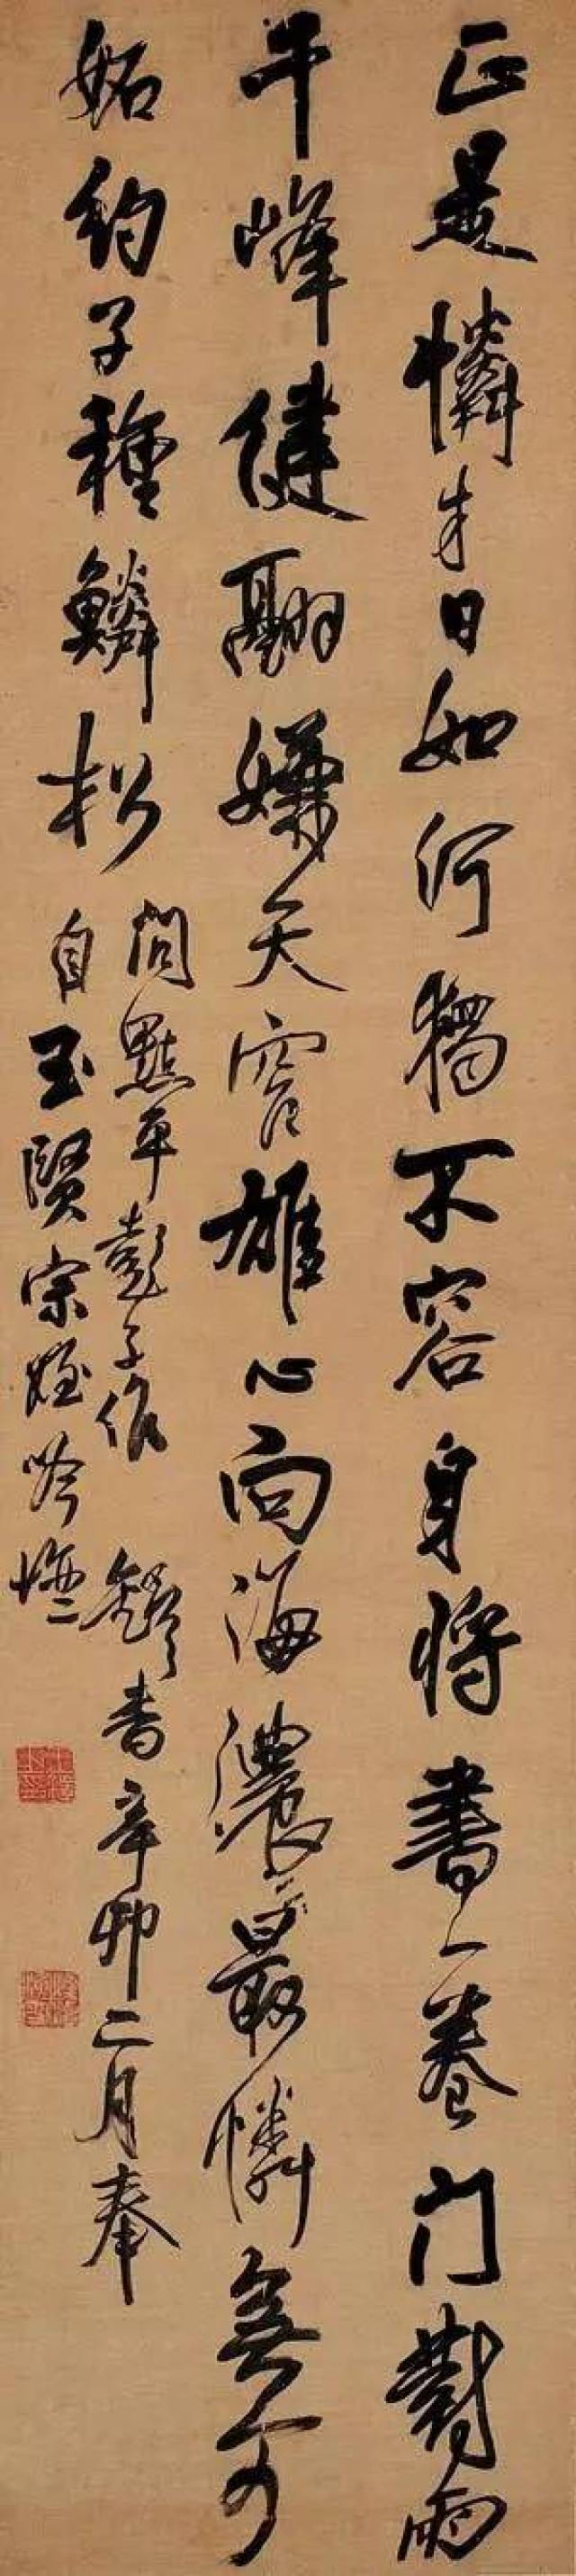 正是憐才日如何獨不容身將書一卷門對雨
千峰健翮嫌天窄雄心向海濃最憐無可
妬約子種鱗松
問點平彭子作 鐸書辛卯二月奉
自玉賢宗姪吟